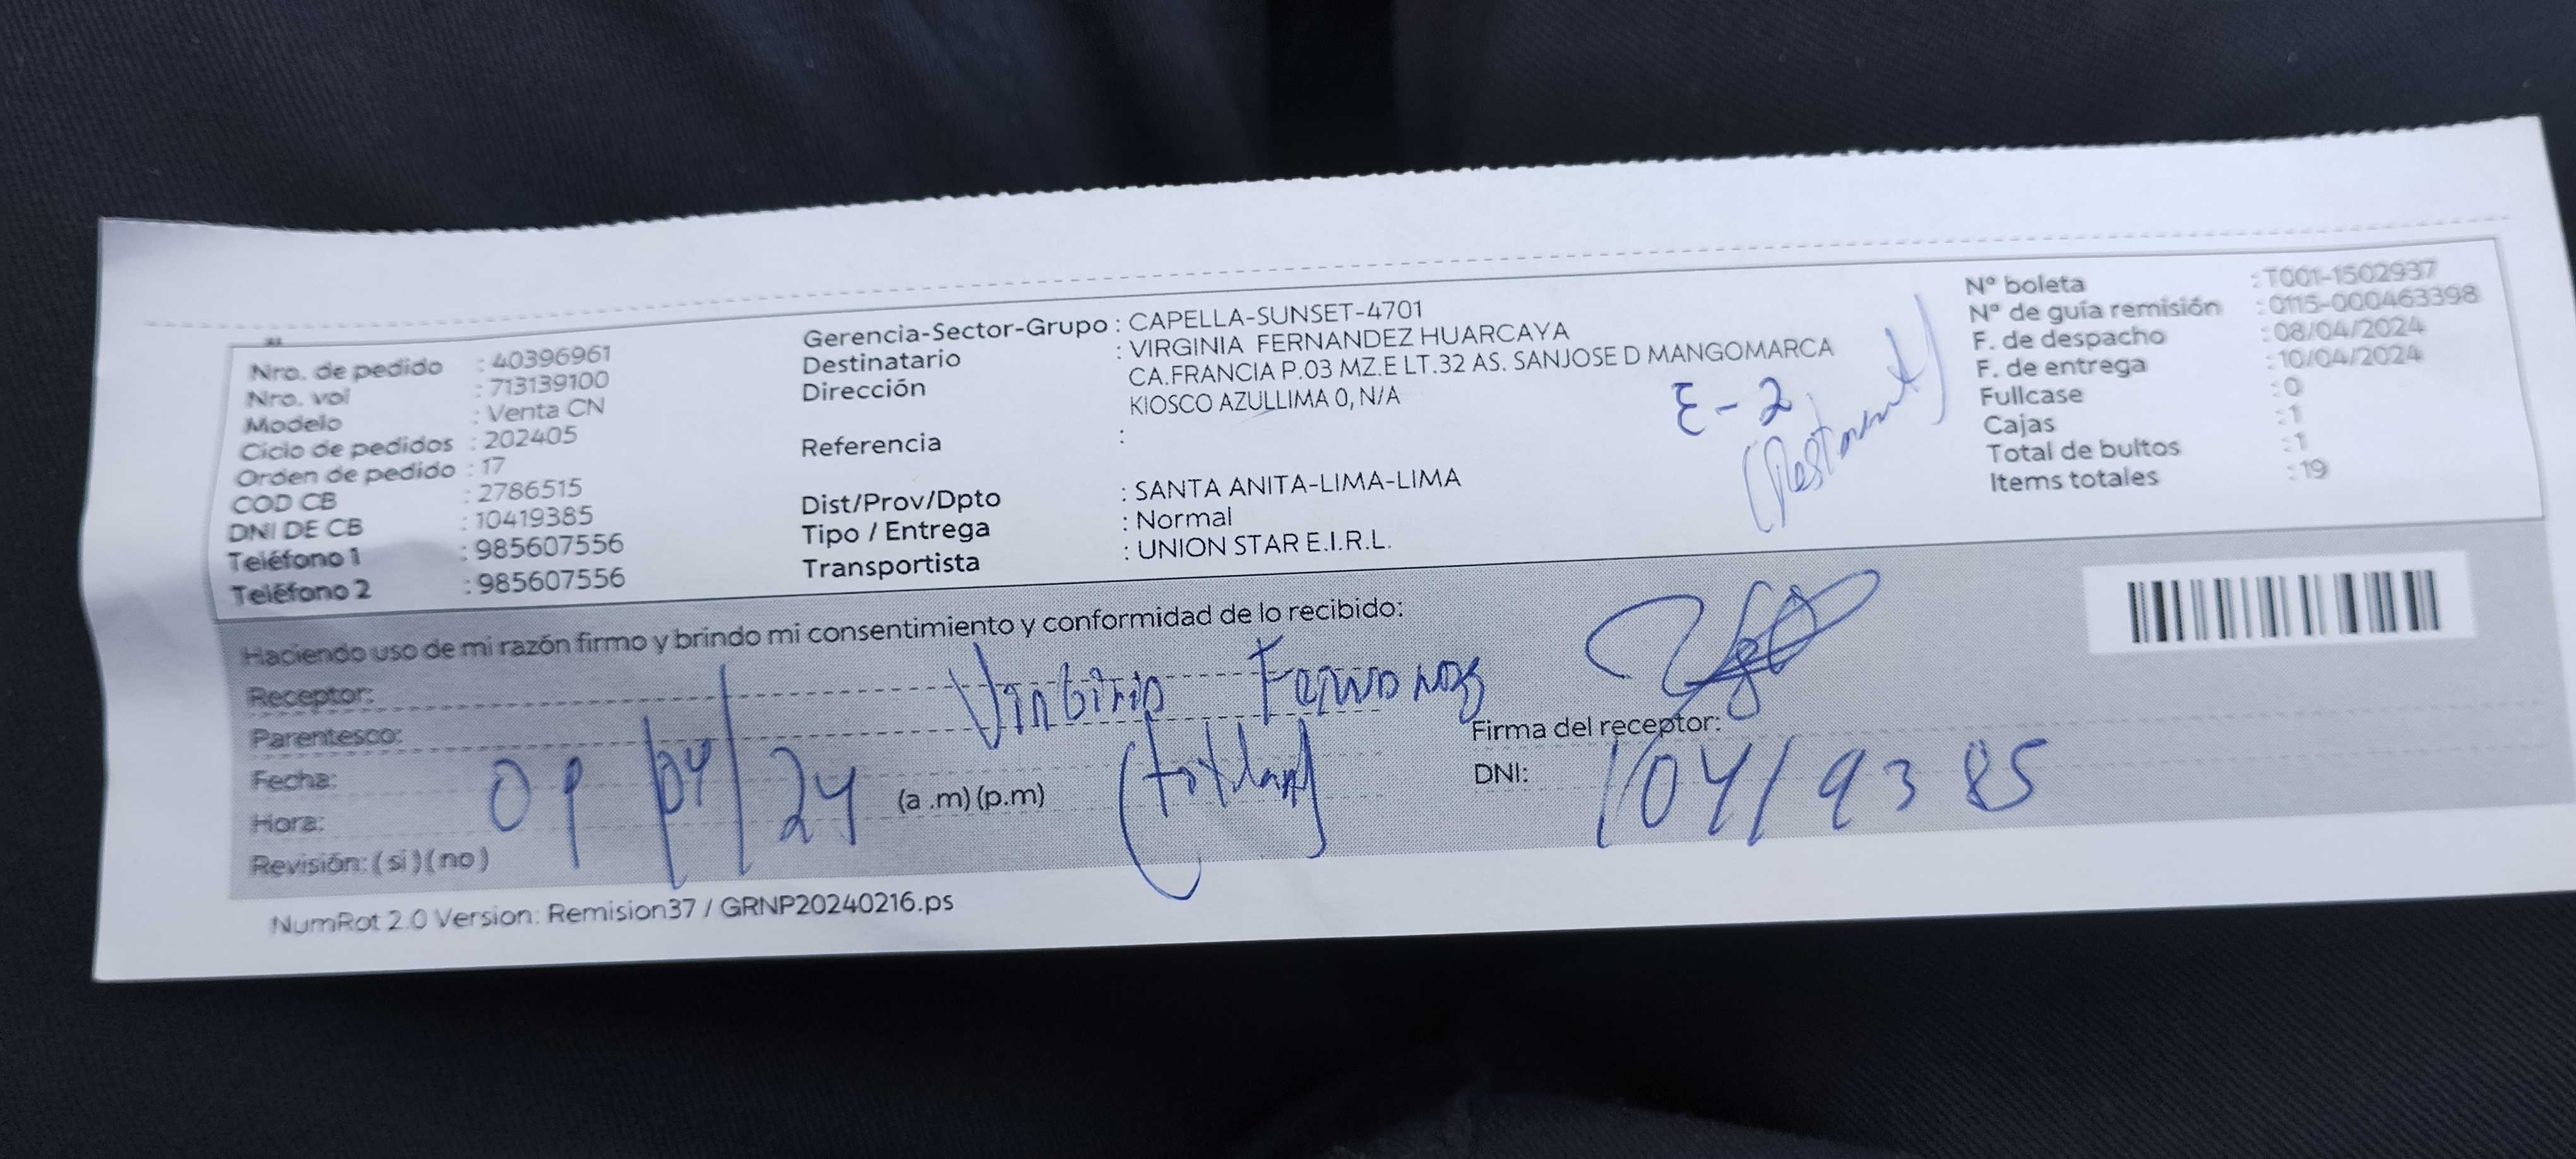 Nro. de pedido : 40396961
Nro. vol : 713139100
Modelo : Venta CN
Ciclo de pedidos : 202405
Orden de pedido : 17
COD CB : 2786515
DNI DE CB : 10419385
Teléfono 1 : 985607556
Teléfono 2 : 985607556
Gerencia-Sector-Grupo : CAPELLA-SUNSET-4701
Destinatario : VIRGINIA FERNANDEZ HUARCAYA
Dirección CA.FRANCIA P.03 MZ.E LT.32 AS. SANJOSE D MANGOMARCA
KIOSCO AZULLIMA 0, N/A
Referencia :
Dist/Prov/Dpto : SANTA ANITA-LIMA-LIMA
Tipo / Entrega : Normal
Transportista : UNION STAR E.I.R.L.
E-2
Nº boleta : T001-1502937
Nº de guía remisión : 0115-000463398
F. de despacho : 08/04/2024
F. de entrega : 10/04/2024
Fullcase : 0
Cajas : 1
Total de bultos : 1
Items totales : 19
Haciendo uso de mi razón firmo y brindo mi consentimiento y conformidad de lo recibido:
Receptor:
Parentesco:
Fecha: 09/04/24
Hora: (a .m) (p.m)
Revisión: ( si ) ( no )
Firma del receptor:
DNI: 10419385
NumRot 2.0 Version: Remision37 / GRNP20240216.ps